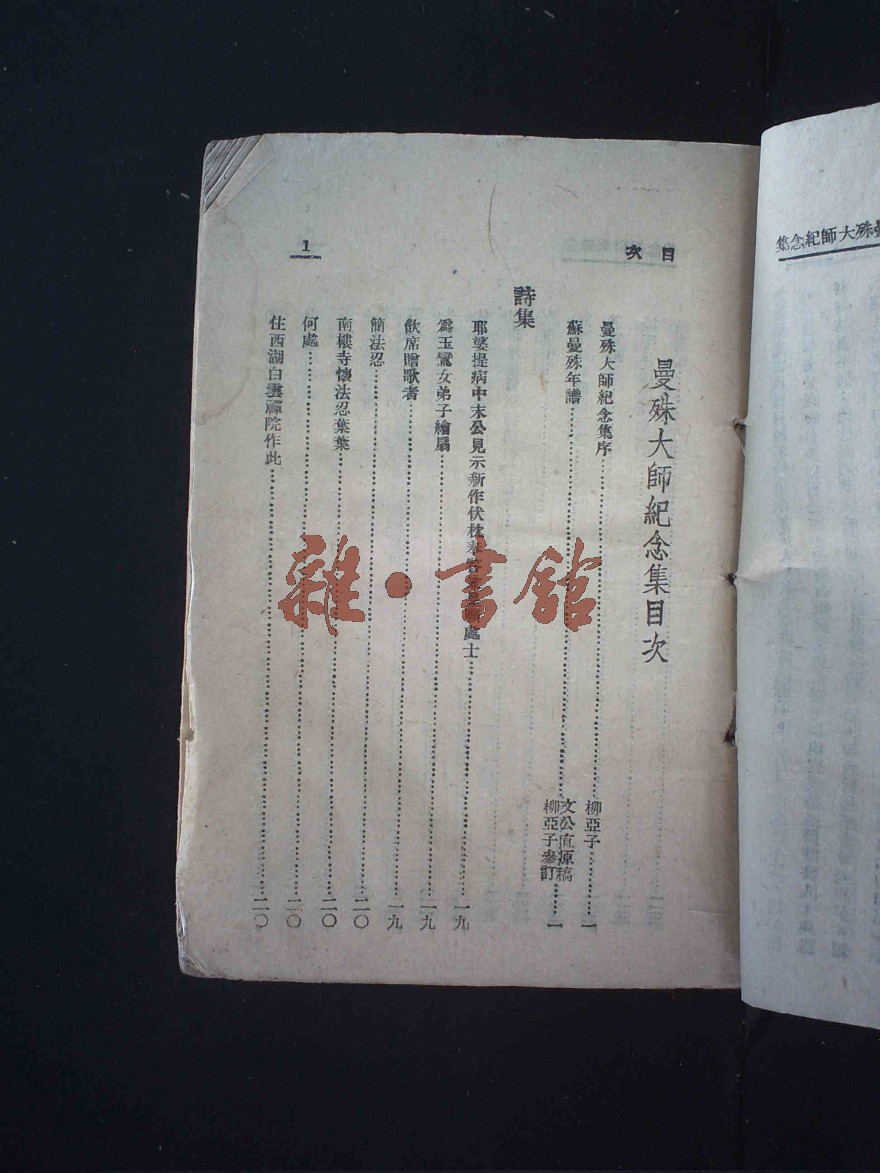 目次
1
曼殊大師紀念集目次
曼殊大師紀念集序……柳亞子……一
蘇曼殊年譜……文公直原稿
柳亞子參訂……一
詩集
耶婆提病中末公見示新作伏枕奉答 處士……一九
爲玉鸞女弟子繪扇……一九
飲席贈歌者……一九
簡法忍……二〇
南樓寺懷法忍葉葉……二〇
何處……二〇
住西湖白雲禪院作此……二〇
曼殊大師紀念集
雜·書館